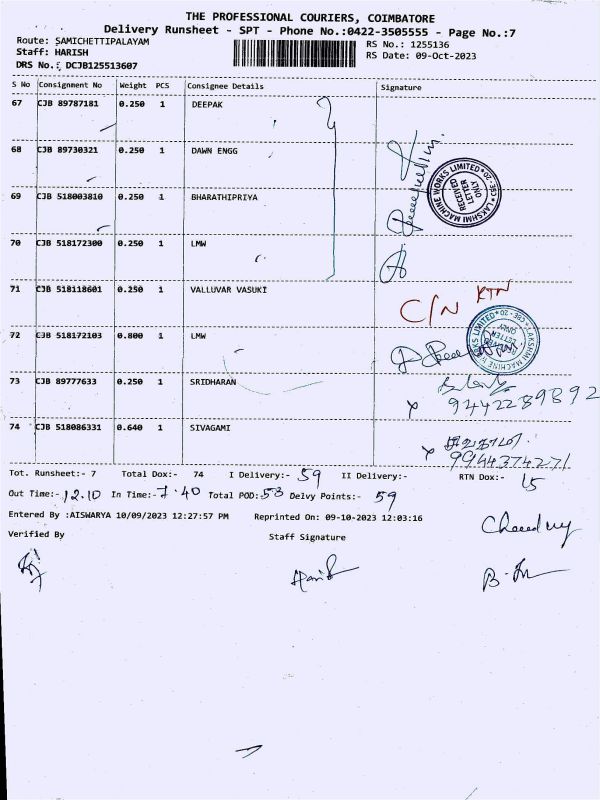 THE PROFESSIONAL COURIERS, COIMBATORE
Delivery Runsheet - SPT - Phone No.:0422-3505555 - Page No.:7
Route: SAMICHETTIPALAYAM RS No.: 1255136
Staff: HARISH RS Date: 09-Oct-2023
DRS No.: DCJB125513607
S No Consignment No Weight PCS Consignee Details Signature
67 CJB 89787181 0.250 1 DEEPAK
68 CJB 89730321 0.250 1 DAWN ENGG
LAKSHMI MACHINE WORKS LIMITED CBE-20
RECEIVED
LETTER
ONLY
69 CJB 518003810 0.250 1 BHARATHIPRIYA
70 CJB 518172300 0.250 1 LMW
71 CJB 518118601 0.250 1 VALLUVAR VASUKI
C/N RTN
72 CJB 518172103 0.800 1 LMW
LAKSHMI MACHINE WORKS LIMITED CBE-20
RECEIVED
LETTER
ONLY
73 CJB 89777633 0.250 1 SRIDHARAN
9442289892
74 CJB 518086331 0.640 1 SIVAGAMI
9944374271
Tot. Runsheet:- 7 Total Dox:- 74 I Delivery:- 59 II Delivery:- RTN Dox:- 15
Out Time:- 12.10 In Time:- 7.40 Total POD:- 58 Delvy Points:- 59
Entered By :AISWARYA 10/09/2023 12:27:57 PM Reprinted On: 09-10-2023 12:03:16
Verified By Staff Signature